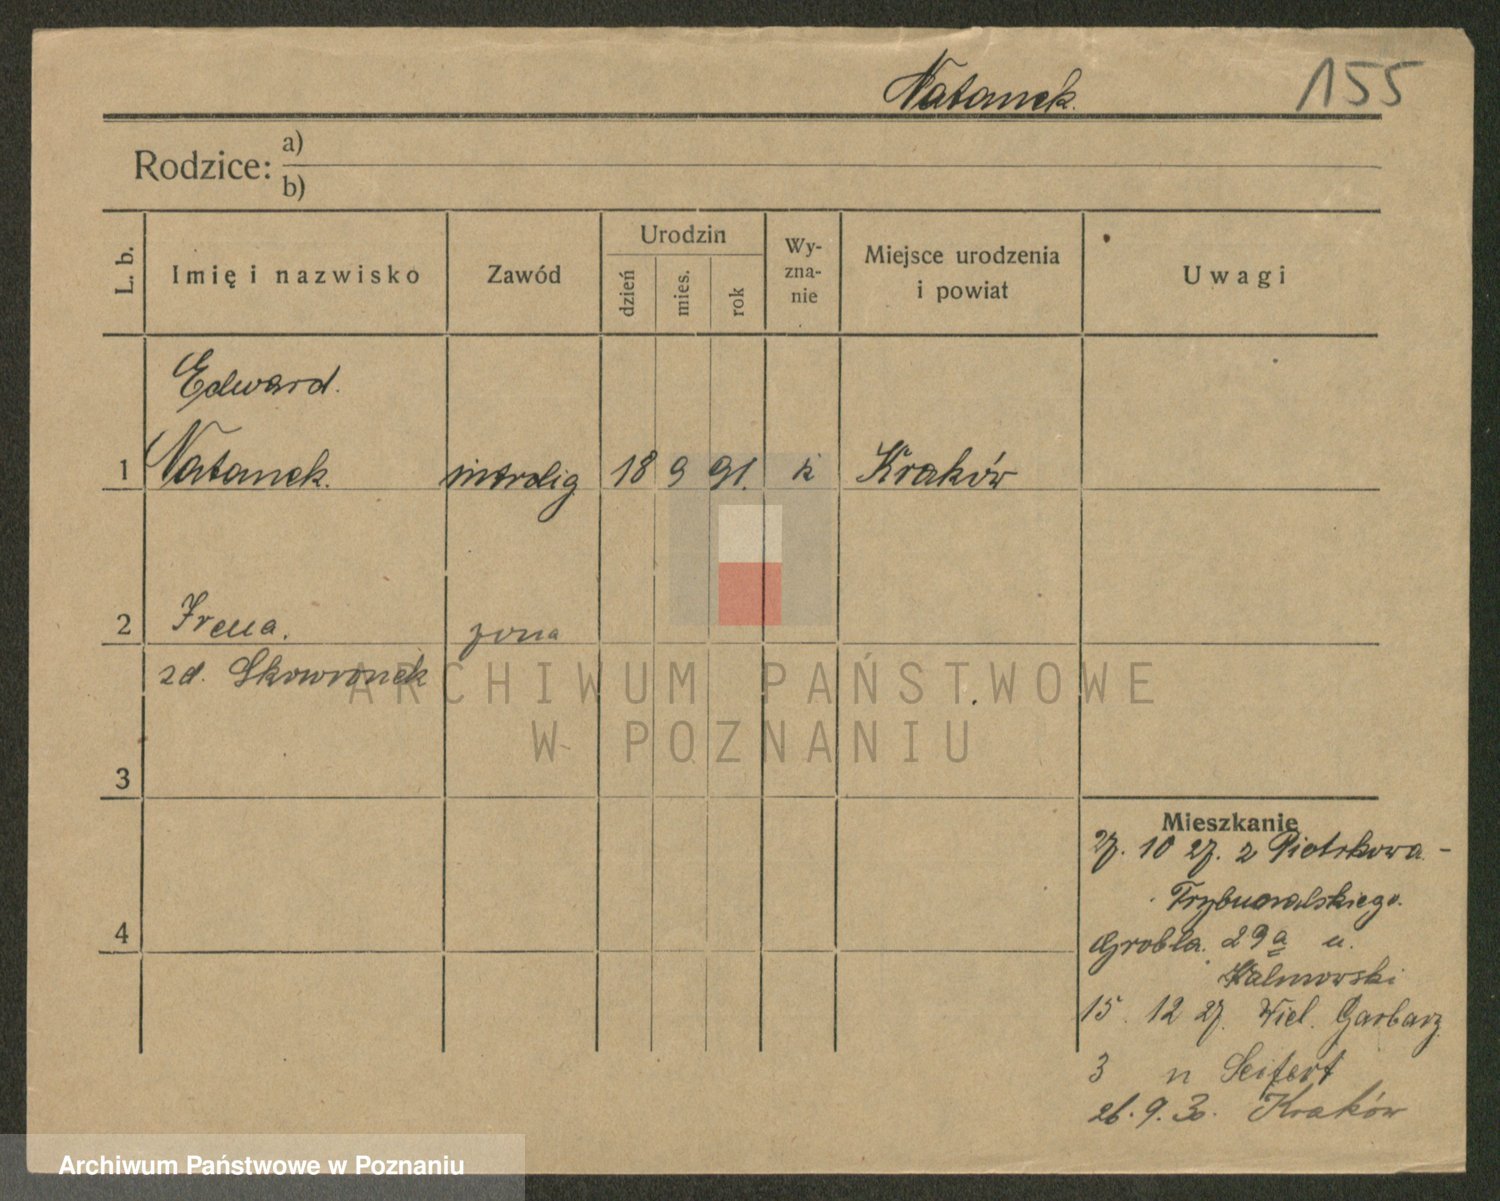 Natanek. 155
Rodzice: a)
b)
L. b. Imię i nazwisko Zawód Urodzin dzień mies. rok Wy-zna-nie Miejsce urodzenia i powiat Uwagi
Edward.
1 Natanek. introlig 18 9 91. k Kraków
2 Irena. żona
zd. Skowronek
ARCHIWUM PAŃSTWOWE
W POZNANIU
3
Mieszkanie
27. 10 27. z Piotrkowa -
Trybunalskiego.
4
Grobla. 29a u.
Kalinowski
15. 12 27. Wiel. Garbary
3 u Seifert
26. 9. 30. Kraków
Archiwum Państwowe w Poznaniu